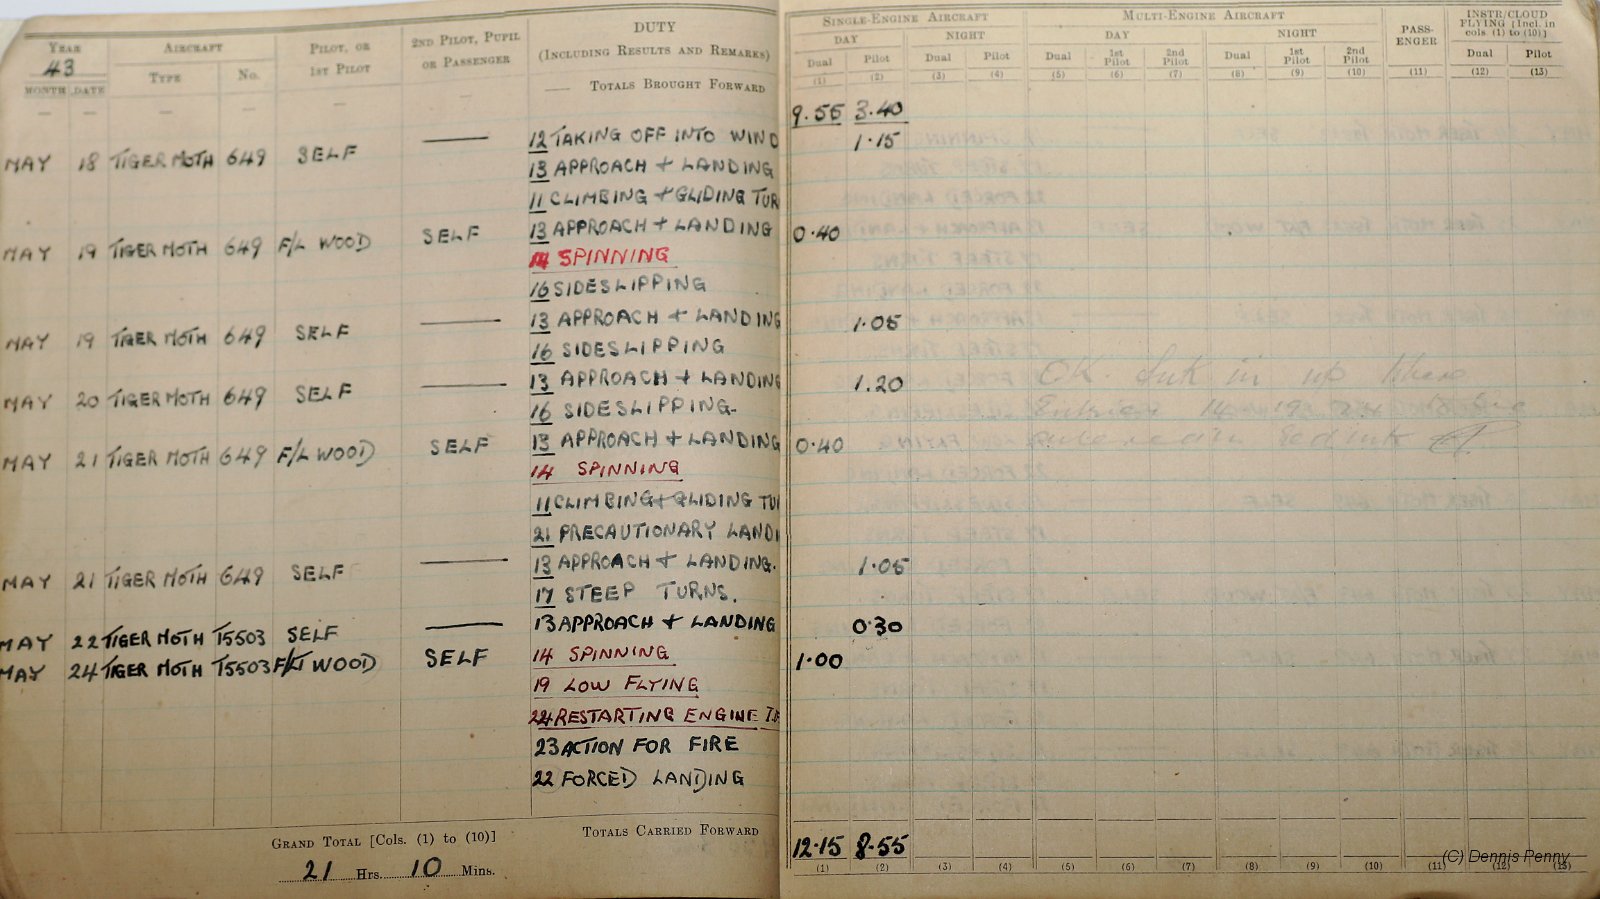 YEAR AIRCRAFT PILOT, OR 2ND PILOT, PUPIL DUTY
43 TYPE No. 1ST PILOT OR PASSENGER (INCLUDING RESULTS AND REMARKS)
MONTH DATE
— — — — — — TOTALS BROUGHT FORWARD
SINGLE-ENGINE AIRCRAFT MULTI-ENGINE AIRCRAFT PASS-ENGER INSTR/CLOUD FLYING [Incl. in cols. (1) to (10)]
DAY NIGHT DAY NIGHT
Dual Pilot Dual Pilot Dual 1st Pilot 2nd Pilot Dual 1st Pilot 2nd Pilot Dual Pilot
(1) (2) (3) (4) (5) (6) (7) (8) (9) (10) (11) (12) (13)
9.55 3.40
MAY 18 TIGER MOTH 649 SELF — 12 TAKING OFF INTO WIND 1.15
13 APPROACH + LANDING
11 CLIMBING + GLIDING TUR
MAY 19 TIGER MOTH 649 F/L WOOD SELF 13 APPROACH + LANDING 0.40
14 SPINNING
16 SIDESLIPPING
MAY 19 TIGER MOTH 649 SELF — 13 APPROACH + LANDING 1.05
16 SIDESLIPPING
MAY 20 TIGER MOTH 649 SELF — 13 APPROACH + LANDING 1.20
16 SIDESLIPPING-
MAY 21 TIGER MOTH 649 F/L WOOD SELF 13 APPROACH + LANDING 0.40
14 SPINNING
11 CLIMBING + GLIDING TU
21 PRECAUTIONARY LANDI
MAY 21 TIGER MOTH 649 SELF — 13 APPROACH + LANDING. 1.05
17 STEEP TURNS.
MAY 22 TIGER MOTH T5503 SELF — 13 APPROACH + LANDING 0.30
MAY 24 TIGER MOTH T5503 F/LT WOOD SELF 14 SPINNING 1.00
19 LOW FLYING
24 RESTARTING ENGINE
23 ACTION FOR FIRE
22 FORCED LANDING
GRAND TOTAL [Cols. (1) to (10)] TOTALS CARRIED FORWARD 12.15 8.55
21 Hrs. 10 Mins. (1) (2) (3) (4) (5) (6) (7) (8) (9) (10) (11) (12) (13)
(C) Dennis Penny